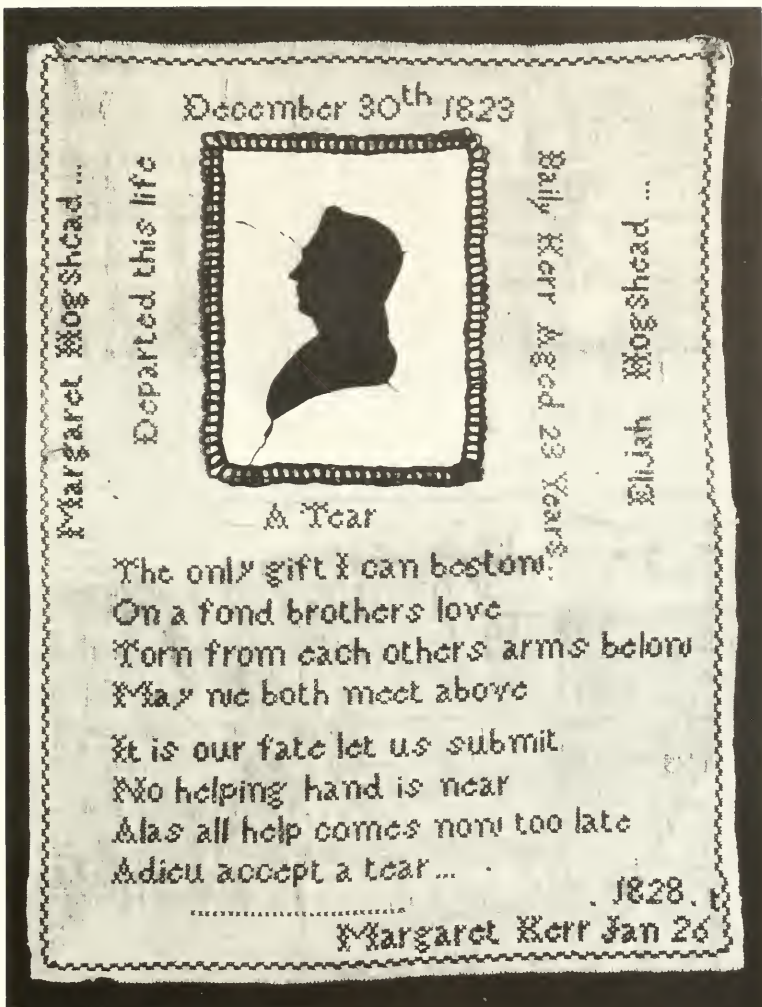 December 30th 1823
Margaret Hogshead ...
Departed this life
Baily Kerr Aged 23 Years
Elijah Hogshead ...
A Tear
The only gift I can bestow
On a fond brothers love
Torn from each others arms below
May we both meet above
It is our fate let us submit
No helping hand is near
Alas all help comes now too late
Adieu accept a tear...
1828
Margaret Kerr Jan 26